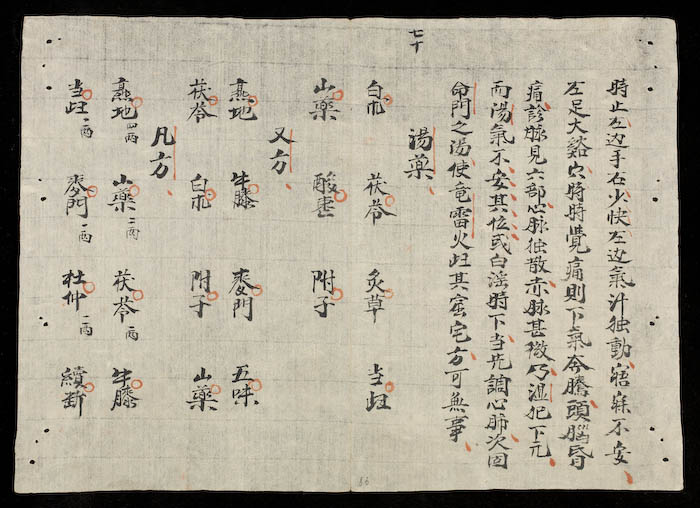 七十
時止左边手右少快左边氣汁独動寤寐不安
左足大谿穴時時覺痛則下氣令騰頭腦昏
痛診脉見六部心脉独散赤脉甚微乃湿犯下元
而湯氣不安其位或白淫時下当先調心肺次固
命門之湯使竜雷火歧其窟宅方可無事
湯藥
白朮 茯苓 炙草 当歧
山藥 酸棗 附子
又方
熹地 牛膝 麥門 五味
茯苓 白朮 附子 山藥
凡方
熹地四両 山藥二両 茯苓一両 牛膝
当歧一両 麥門一両 杜仲一両 續断